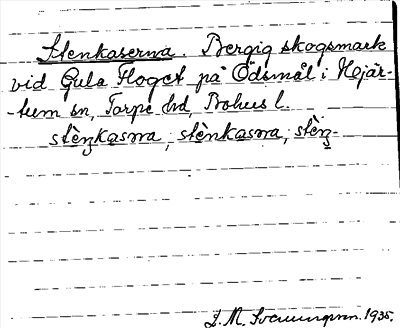 Stenkaserna. Bergig skogsmark
vid Gula Floget på Ödsmål i Hjär-
-tum sn, Torpe hd, Bohus l.
stèŋkasṃa, stènkasṃa, stèŋ-
J. M. Svenungsson. 1935.